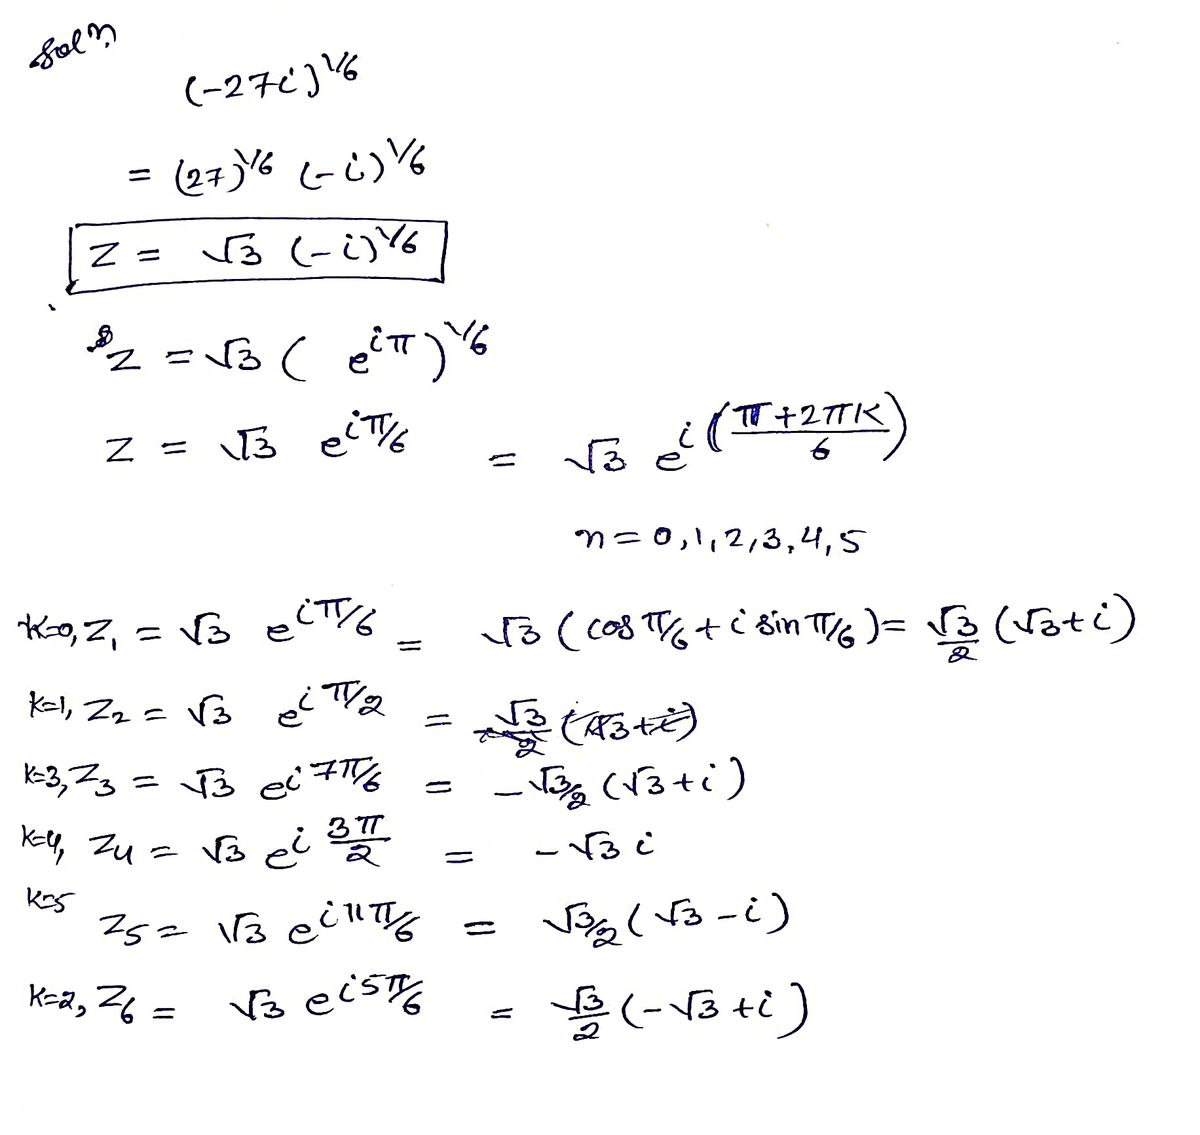 Soln
(-27i)^1/6
= (27)^1/6 (-i)^1/6
Z = √3 (-i)^1/6
Z = √3 ( e^iπ )^1/6
Z = √3 e^iπ/6 = √3 e^i(π+2πK/6)
n = 0,1,2,3,4,5
K=0, Z₁ = √3 e^iπ/6 = √3 (cos π/6 + i sin π/6) = √3/2 (√3+i)
K=1, Z₂ = √3 e^iπ/2 = √3 i
K=3, Z₃ = √3 e^i7π/6 = -√3/2 (√3+i)
K=4, Z4 = √3 e^i3π/2 = -√3 i
K=5 Z5 = √3 e^i11π/6 = √3/2 (√3-i)
K=2, Z6 = √3 e^i5π/6 = √3/2 (-√3+i)